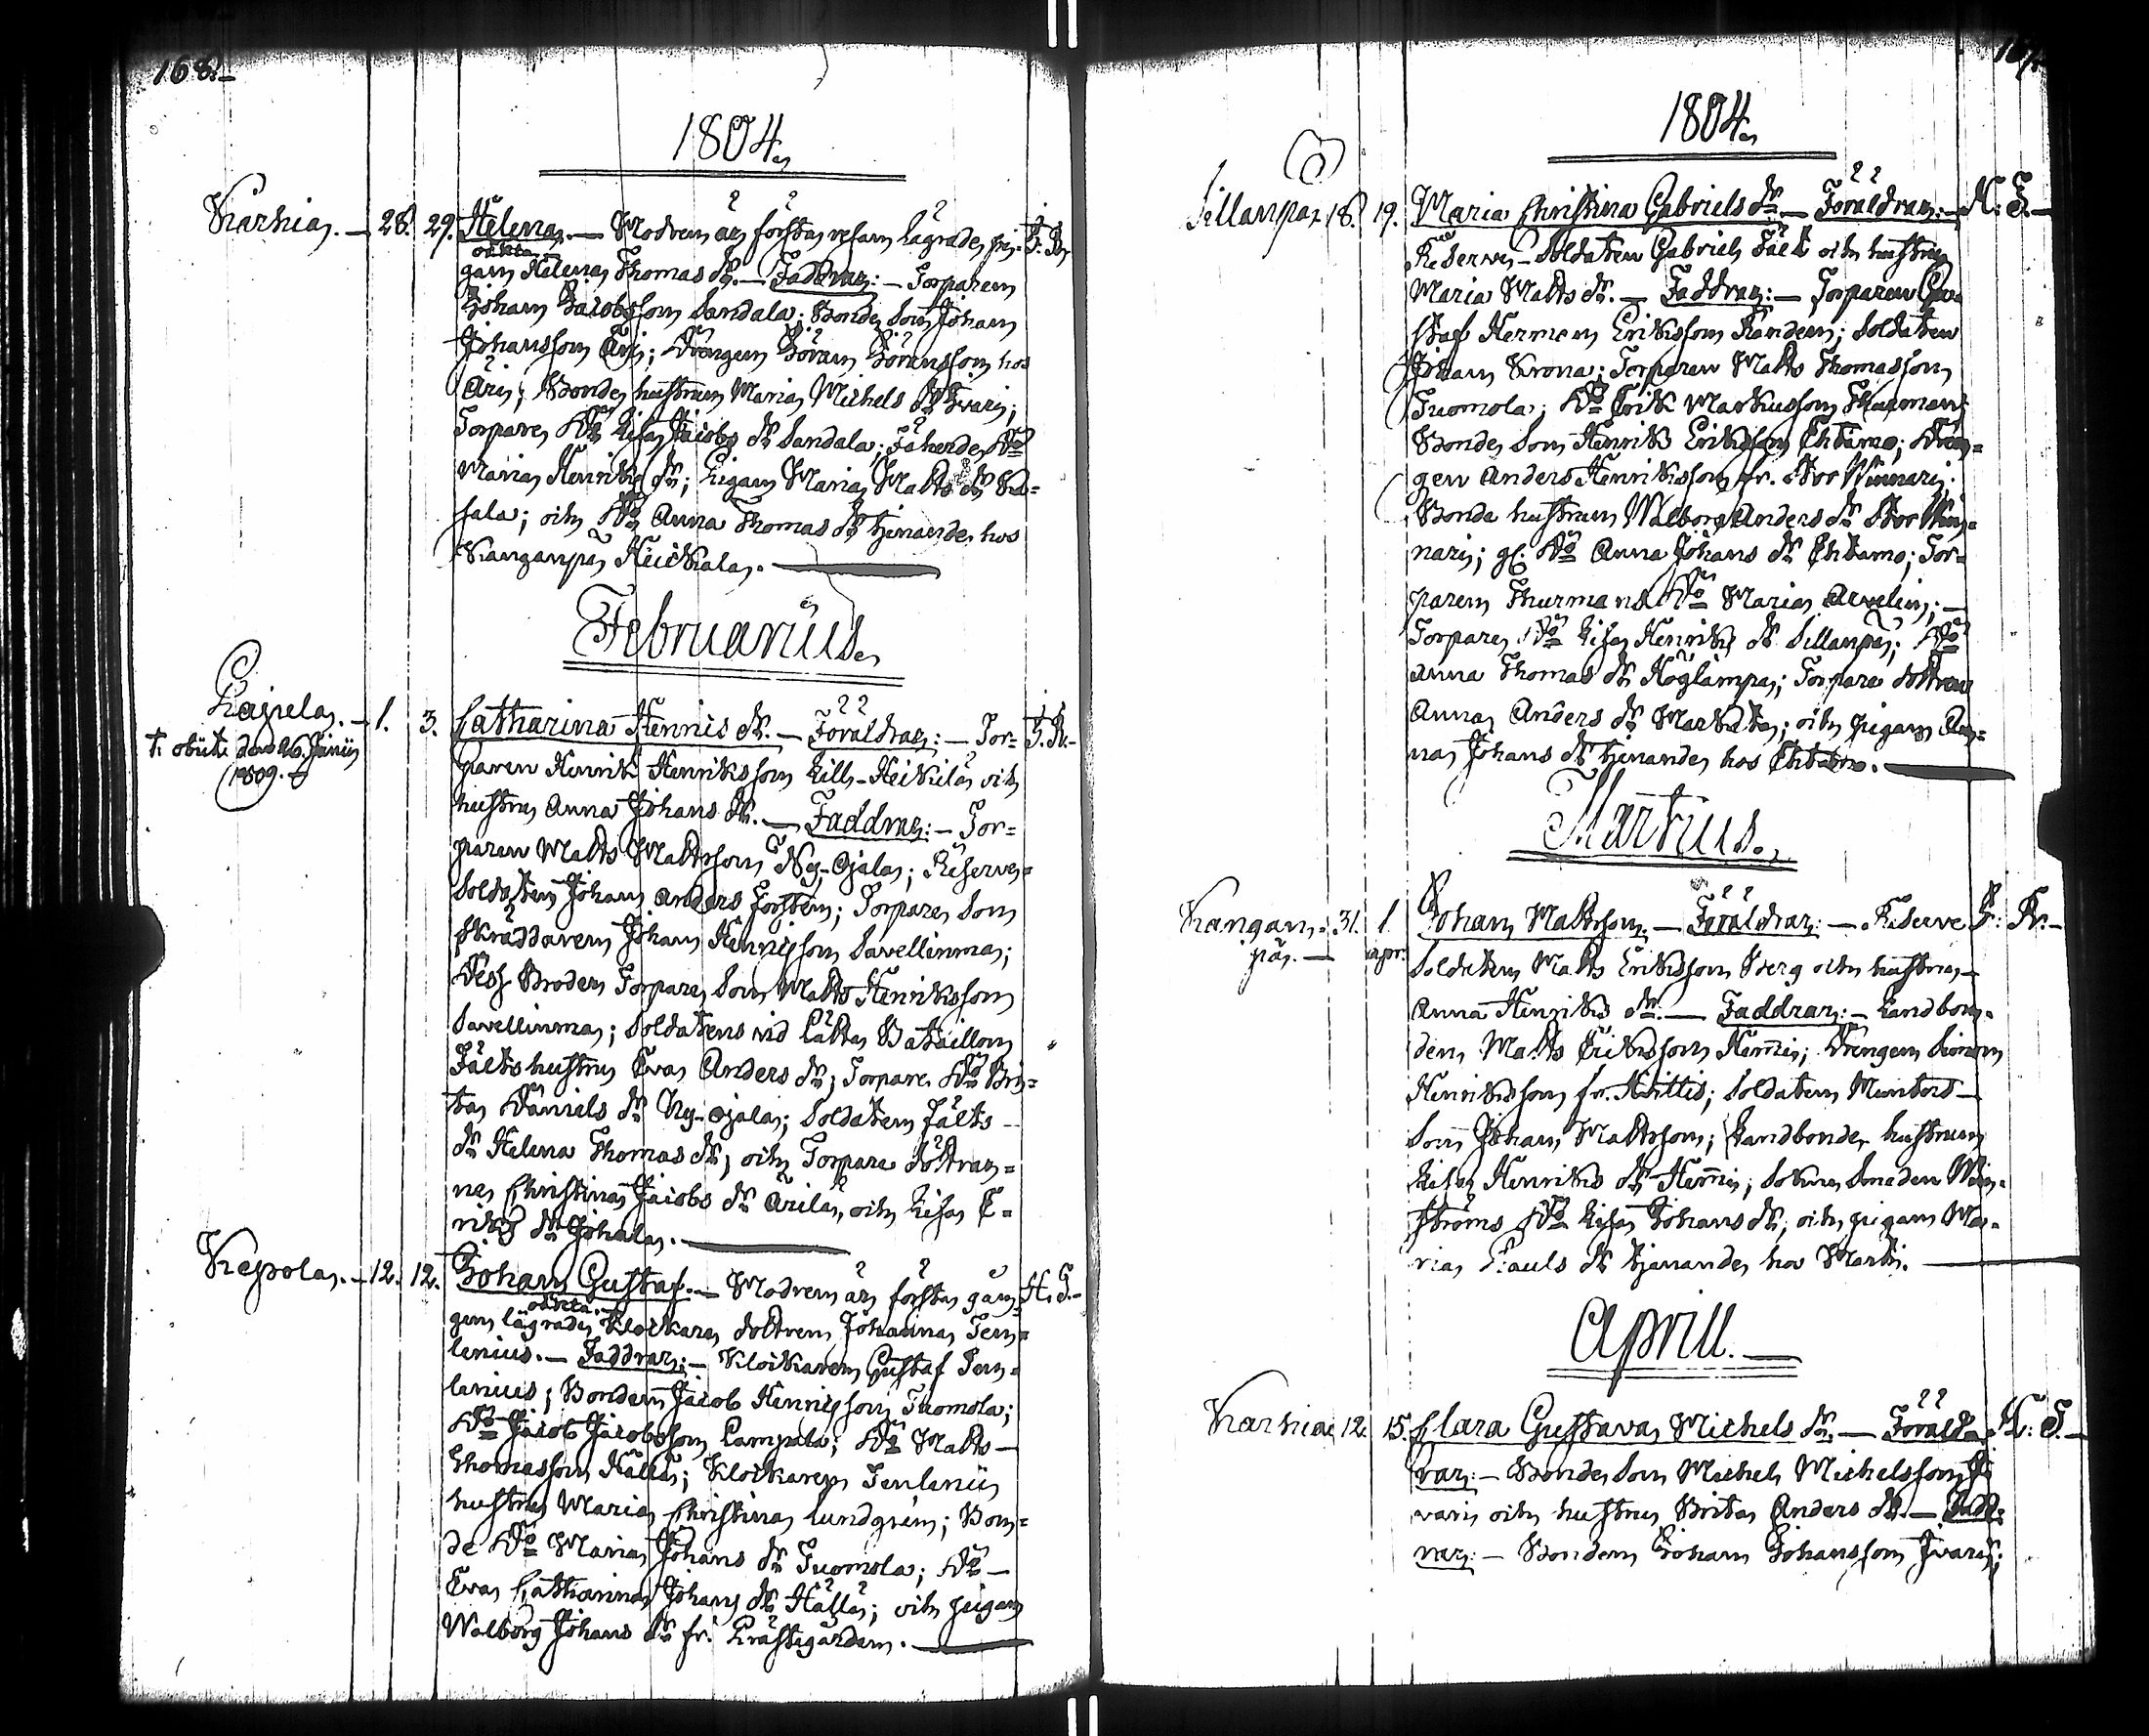 168.
1804.
Karhia. — 28. 29. Helena. — Modren är första resan lägrade pi- J. R.
oächta
gan Helena Thomas dr. — Faddrar: — Torparen
Johan Jacobsson Sandala; Bonde Son Johan
Johansson Äri; Drängen Göran Göransson hos
Äri; Bonde hustrun Maria Michels dr Ivari;
Torpare Do Lisa Jacobs dr Sandala; Do
Maria Henriks dr; Pigan Maria Matts dr
sala; och Do Anna Thomas dr tjenande hos
Kanganpä Heickala.
Februarius.
Lajpela. — 1. 3. Catharina Henrics dr. — Föräldrar: — Tor= J. R.—
† obiit den 26 Junii
1809. †
paren Henrik Henriksson Lill-Heickilä och
hustru Anna Johans dr. — Faddrar: — Tor=
paren Matts Mattsson Ny-Ojala; Reserve=
Soldaten Johan Anders Forsten; Torpare Son
Skräddaren Johan Henricsson Savellinma;
Dess Broder Torpare Son Matts Henriksson
Savellinma; Soldatens vid Lätta Bataillon
Fälts hustru Eva Anders dr; Torpare Do Bri=
ta Daniels dr Ny-Ojala; Soldaten Fälts
dr Helena Thomas dr; och Torpare döttrar=
na Christina Jacobs dr Ärilä, och Lisa E=
riks dr Johala.
Kepola. — 12. 12. Johan Gustaf. — Modren är första gån= H. S.—
oächta.
gen lägrade Klockare dottren Johanna Ten=
lenius. — Faddrar: — Klockaren Gustaf Ten=
lenius; Bonden Jacob Henricsson Tuomola;
Do Jacob Jacobsson Lampola; Do Matts —
Thomasson Hällä; Klockaren Tenlenii
hustru Maria Christina Lundgren; Bon=
de Do Maria Johans dr Tuomola; Do —
Eva Catharina Johans dr Hällä; och pigan
Walborg Johans dr fr. Prästegården.
1804.
Sillanpä 18. 19. Maria Christina Gabriels dr. — Föräldrar: — H: S.—
Reserve-Soldaten Gabriel Fält och hustru
Maria Matts dr. — Faddrar: — Torparen Gu=
staf Herman Eriksson Randen; Soldaten
Johan Krona; Torparen Matts Thomasson
Tuomola; Do Erik Markusson Thurman;
Bonde Son Henrik Eriksson Ehtamo; Drän=
gen Anders Henriksson fr. Stor Winnari;
Bonde hustrun Walborg Anders dr Stor Win=
nari; gl: Do Anna Johans dr Ehtamo; Tor=
paren Thurmans Do Maria Avelin; —
Torpare Do Lisa Henriks dr Sillanpä; Do
Anna Thomas dr Höglämpa; Torpare dottren
Anna Anders dr Markkta; och pigan An=
na Johans dr tjenande hos Ehtamo.
Martius.
Kangan= 31. 1. Johan Mattsson. — Föräldrar: — Reserve J: R.—
pä. — apr:
Soldaten Matts Eriksson Berg och hustru
Anna Henriks dr. — Faddrar: — Landbon=
den Matts Eriksson Hemmi; Drängen Simon
Henriksson fr. Huittis; Soldaten Muntors
Son Johan Mattsson; Landbonde hustrun
Lisa Henriks dr Hemmi; Sockne Smeden Win=
ströms Do Lisa Johans dr; och pigan Ma=
ria Pauls dr tjenande hos Martti.
Aprill.
Karhia 12. 15. Clara Gustava Michels dr. — Föräld= H: S.—
rar: — Bonde Son Michel Michelsson I=
vari och hustru Brita Anders dr. — Fadd=
rar: — Bonden Johan Johansson Ivari;